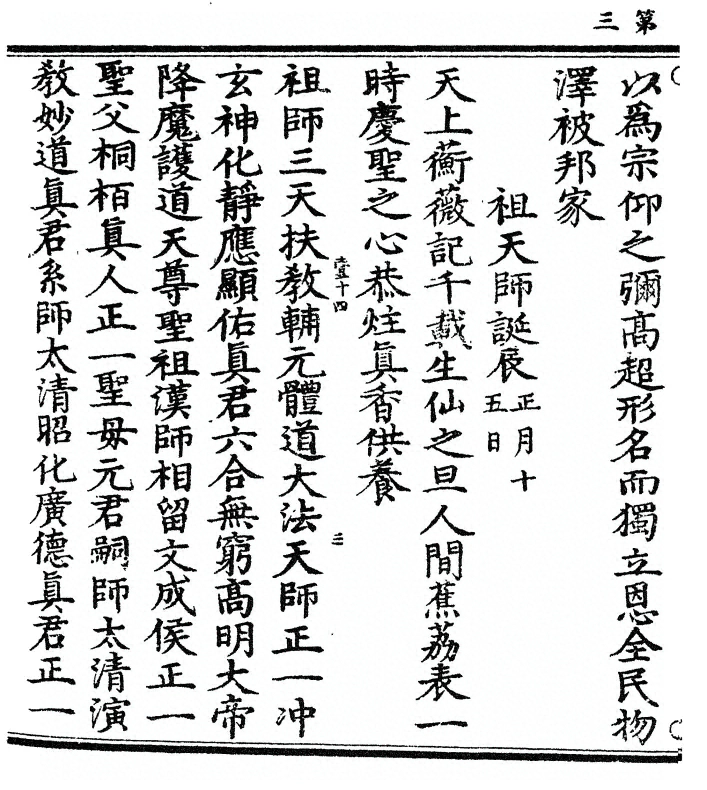 第三
以爲宗仰之彌高超形名而獨立恩全民物
澤被邦家
祖天師誕辰正月十五日
天上蘅薇記千載生仙之旦人間蕉荔表一
時慶聖之心恭炷眞香供養
祖師三天扶教輔元體道大法天師正一冲
玄神化靜應顯佑眞君六合無窮高明大帝
降魔護道天尊聖祖漢師相留文成侯正一
聖父桐栢眞人正一聖毋元君嗣師太清演
教妙道眞君系師太清昭化廣德眞君正一
十四
三